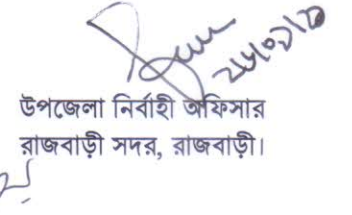 উপজেলা নির্বাহী অফিসার
রাজবাড়ী সদর, রাজবাড়ী।